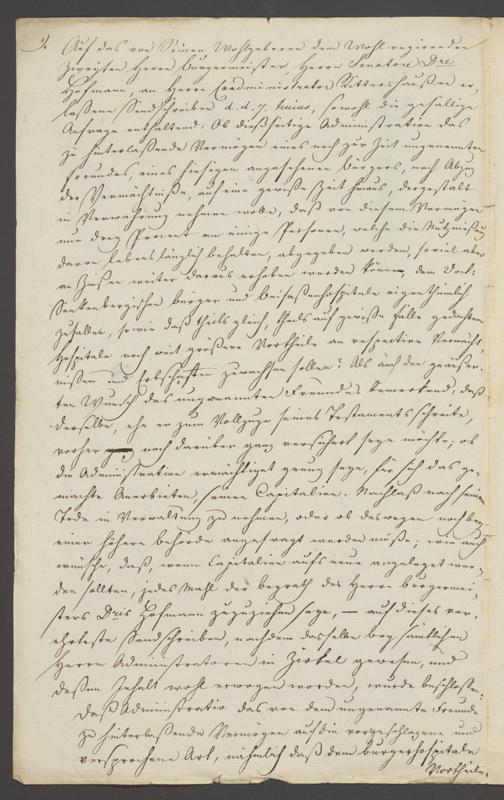 Auf das von Seiner Wohlgeboren dem Wohl regierenden
Zweyten Herrn Burgermeister, Herrn Senatore Dre
Hofmann, an Herrn Coadministrator Rittershaußen er,
laßene Sendschreiben d. d. 7. huius, sowohl die gefällige
Anfrage enthaltend: Ob dießseitige Administration das
zu hinterlaßende Vermögen eines noch zur Zeit ungenannten
Freundes, eines hiesigen angesehenen Bürgers, nach Abzug
der Vermächtniße, auf eine gewiße Zeit hinaus, dergestalt
in Verwahrung nehmen wolle, daß von diesem Vermögen
nur drey Procent an einige Personen, welche die Nutznießung
davon lebenslänglich behalten, abgegeben werden, soviel aber
an Zinßen weiter daraus erhoben werden können, dem Dr.
Senkenbergischen Bürger und Beisaßenhospitale eigenthümlich
zufallen, sowie daß theils gleich, theils auf gewiße Fälle gedachtem
Hospitale noch weit größere Vortheile an respective Vermächt,
nißen und Erbschaften zuwachsen sollen? Als auch den geäußer,
ten Wunsch des ungenannten Freundes bemerkend, daß
derselbe, ehe er zum Vollzuge seines Testaments schreite,
vorher noch darüber ganz versichert seyn möchte; ob
die Administration ermächtiget genug seye, für sich das ge,
machte Anerbieten, seinen Capitalien-Nachlaß nach seinem
Tode in Verwaltung zu nehmen, oder ob deswegen noch bey
einer höhern Behörde angefragt werden müße; wie auch
wünsche, daß, wenn Capitalien aufs neue angeleget wer,
den sollten, jedes Mahl der Beyrath des Herrn Burgermei,
sters Dris Hofmann zuzuziehen seye, — auf dieses ver,
ehrteste Sendschreiben, nachdem dasselbe bey sämtlichen
Herren Administratoren in Zirkel gewesen, und
deßen Inhalt wohl erwogen worden, wurde beschloßen:
Daß Administratio das von dem ungenannten Freunde
zu hinterlaßende Vermögen auf die vorgeschlagene und
versprochene Art, nähmlich daß dem Bürgerhospitale
Vortheile,